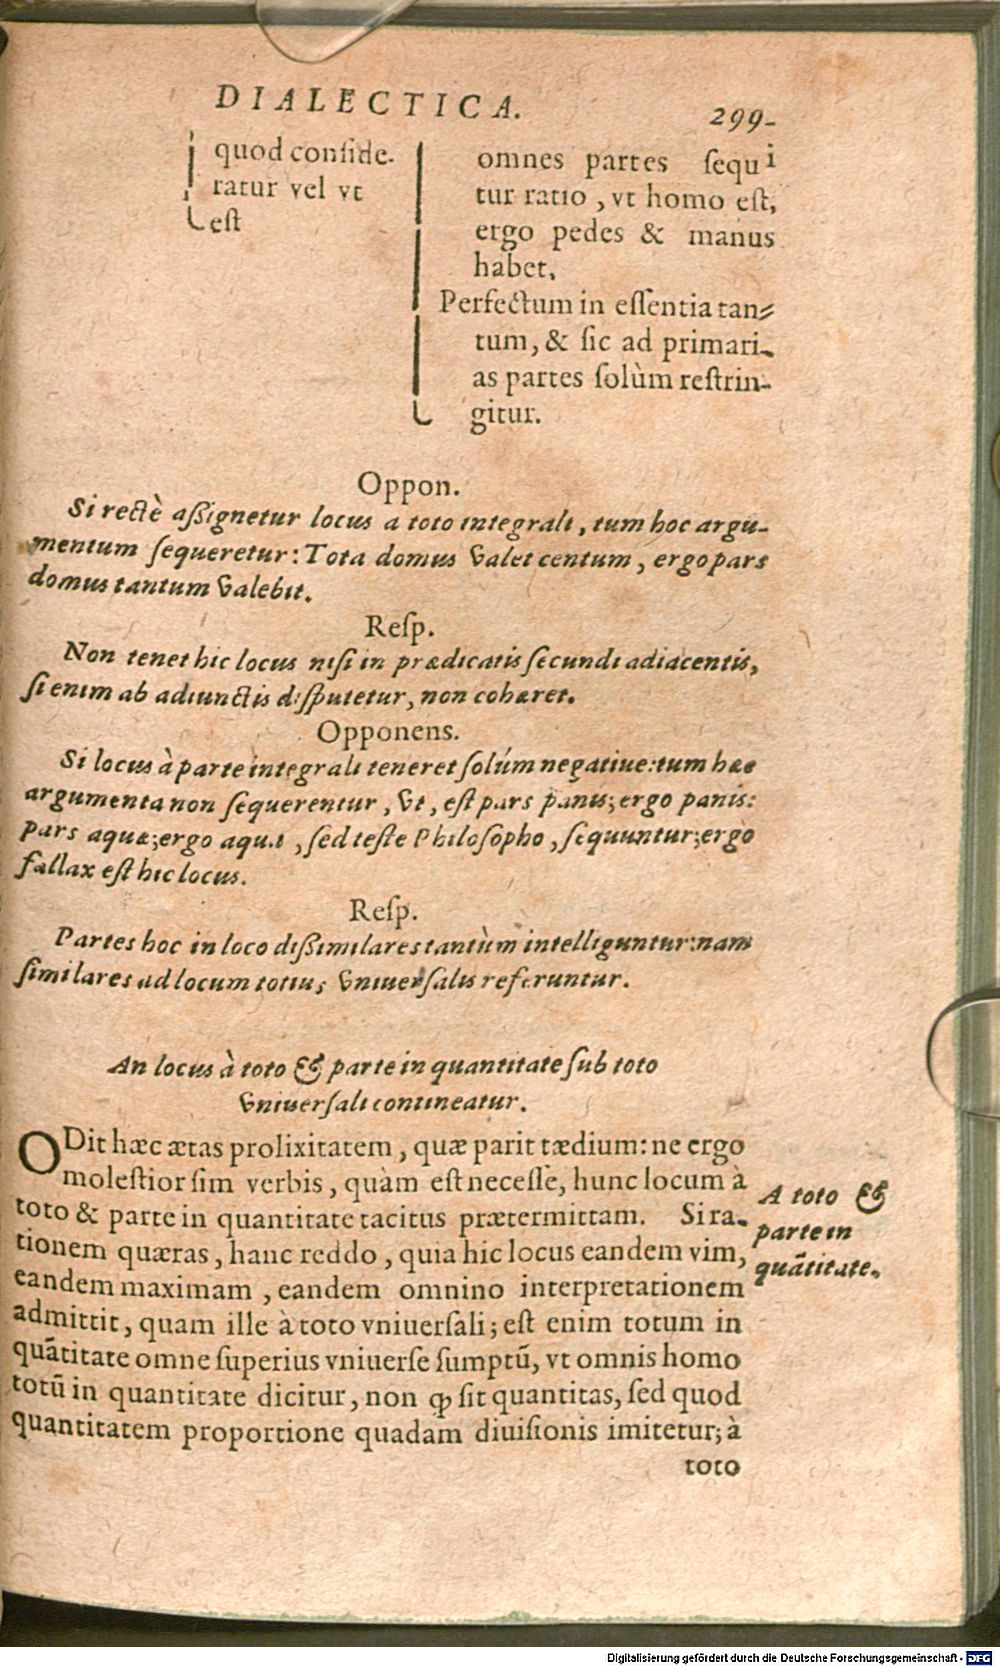 DIALECTICA.
299.
quod conside-
ratur vel vt
est
omnes partes sequi
tur ratio, vt homo est,
ergo pedes & manus
habet.
Perfectum in essentia tan-
tum, & sic ad primari-
as partes solùm restrin-
gitur.
Oppon.
Si rectè aßignetur locus a toto integrali, tum hoc argu-
mentum sequeretur: Tota domus valet centum, ergo pars
domus tantum valebit.
Resp.
Non tenet hic locus nisi in prædicatis secundi adiacentis,
si enim ab adiunctis disputetur, non cohæret.
Opponens.
Si locus à parte integrali teneret solúm negatiue: tum hæc
argumenta non sequerentur, vt, est pars panis; ergo panis:
pars aquæ; ergo aqua, sed teste Philosopho, sequuntur; ergo
fallax est hic locus.
Resp.
Partes hoc in loco dißimilares tantùm intelliguntur: nam
similares ad locum totius vniuersalis referuntur.
An locus à toto & parte in quantitate sub toto
vniuersali contineatur.
ODit hæc ætas prolixitatem, quæ parit tædium: ne ergo
molestior sim verbis, quàm est necesse, hunc locum à
toto & parte in quantitate tacitus prætermittam. Si ra-
tionem quæras, hanc reddo, quia hic locus eandem vim,
eandem maximam, eandem omnino interpretationem
admittit, quam ille à toto vniuersali; est enim totum in
quãtitate omne superius vniuerse sumptũ, vt omnis homo
totũ in quantitate dicitur, non ꝙ sit quantitas, sed quod
quantitatem proportione quadam diuisionis imitetur; à
toto
A toto &
parte in
quãtitate.
Digitalisierung gefördert durch die Deutsche Forschungsgemeinschaft - DFG